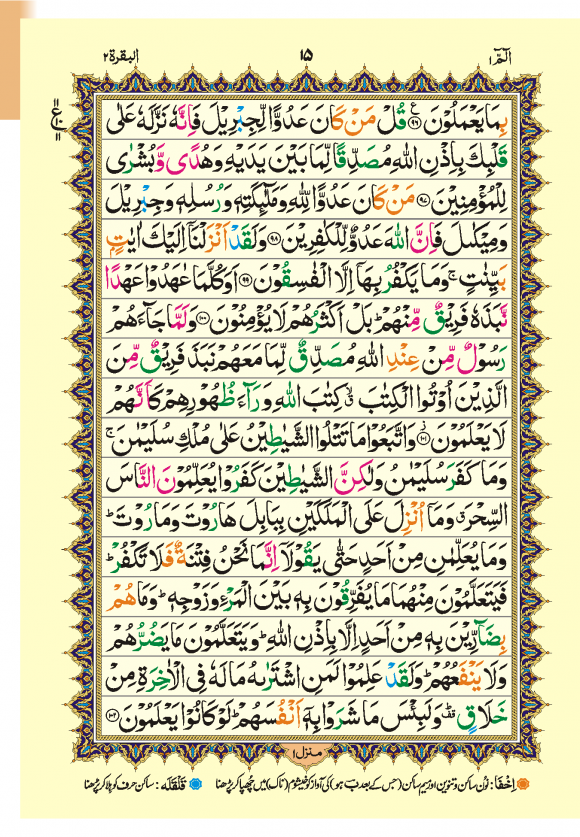 الٓمّٓ ۱ ۱۵ البقرة ۲
بِمَا یَعْمَلُوْنَ ﴿۹۶﴾ قُلْ مَنْ كَانَ عَدُوًّا لِّجِبْرِیْلَ فَاِنَّهٗ نَزَّلَهٗ عَلٰى
قَلْبِكَ بِاِذْنِ اللّٰهِ مُصَدِّقًا لِّمَا بَیْنَ یَدَیْهِ وَ هُدًى وَّ بُشْرٰى
لِلْمُؤْمِنِیْنَ ﴿۹۷﴾ مَنْ كَانَ عَدُوًّا لِّلّٰهِ وَ مَلٰٓىِٕكَتِهٖ وَ رُسُلِهٖ وَ جِبْرِیْلَ
وَ مِیْكٰىلَ فَاِنَّ اللّٰهَ عَدُوٌّ لِّلْكٰفِرِیْنَ ﴿۹۸﴾ وَ لَقَدْ اَنْزَلْنَاۤ اِلَیْكَ اٰیٰتٍۭ
بَیِّنٰتٍ ۚ وَ مَا یَكْفُرُ بِهَاۤ اِلَّا الْفٰسِقُوْنَ ﴿۹۹﴾ اَوَ كُلَّمَا عٰهَدُوْا عَهْدًا
نَّبَذَهٗ فَرِیْقٌ مِّنْهُمْ ؕ بَلْ اَكْثَرُهُمْ لَا یُؤْمِنُوْنَ ﴿۱۰۰﴾ وَ لَمَّا جَآءَهُمْ
رَسُوْلٌ مِّنْ عِنْدِ اللّٰهِ مُصَدِّقٌ لِّمَا مَعَهُمْ نَبَذَ فَرِیْقٌ مِّنَ
الَّذِیْنَ اُوْتُوا الْكِتٰبَ ۙۗ كِتٰبَ اللّٰهِ وَرَآءَ ظُهُوْرِهِمْ كَاَنَّهُمْ
لَا یَعْلَمُوْنَ ﴿۱۰۱﴾ وَ اتَّبَعُوْا مَا تَتْلُوا الشَّیٰطِیْنُ عَلٰى مُلْكِ سُلَیْمٰنَ ۚ
وَ مَا كَفَرَ سُلَیْمٰنُ وَ لٰكِنَّ الشَّیٰطِیْنَ كَفَرُوْا یُعَلِّمُوْنَ النَّاسَ
السِّحْرَ ۗ وَ مَاۤ اُنْزِلَ عَلَى الْمَلَكَیْنِ بِبَابِلَ هَارُوْتَ وَ مَارُوْتَ ؕ
وَ مَا یُعَلِّمٰنِ مِنْ اَحَدٍ حَتّٰى یَقُوْلَاۤ اِنَّمَا نَحْنُ فِتْنَةٌ فَلَا تَكْفُرْ ؕ
فَیَتَعَلَّمُوْنَ مِنْهُمَا مَا یُفَرِّقُوْنَ بِهٖ بَیْنَ الْمَرْءِ وَ زَوْجِهٖ ؕ وَ مَا هُمْ
بِضَآرِّیْنَ بِهٖ مِنْ اَحَدٍ اِلَّا بِاِذْنِ اللّٰهِ ؕ وَ یَتَعَلَّمُوْنَ مَا یَضُرُّهُمْ
وَ لَا یَنْفَعُهُمْ ؕ وَ لَقَدْ عَلِمُوْا لَمَنِ اشْتَرٰىهُ مَا لَهٗ فِی الْاٰخِرَةِ مِنْ
خَلَاقٍ ۫ؕ وَ لَبِئْسَ مَا شَرَوْا بِهٖۤ اَنْفُسَهُمْ ؕ لَوْ كَانُوْا یَعْلَمُوْنَ ﴿۱۰۲﴾
منزل ۱
اِخْفَا : نون ساکن و تنوین اور میم ساکن (جس کے بعد ب ہو) کی آواز کو خیشوم (ناک) میں چھپا کر پڑھنا قَلْقَلَہ : ساکن حرف کو ہلا کر پڑھنا